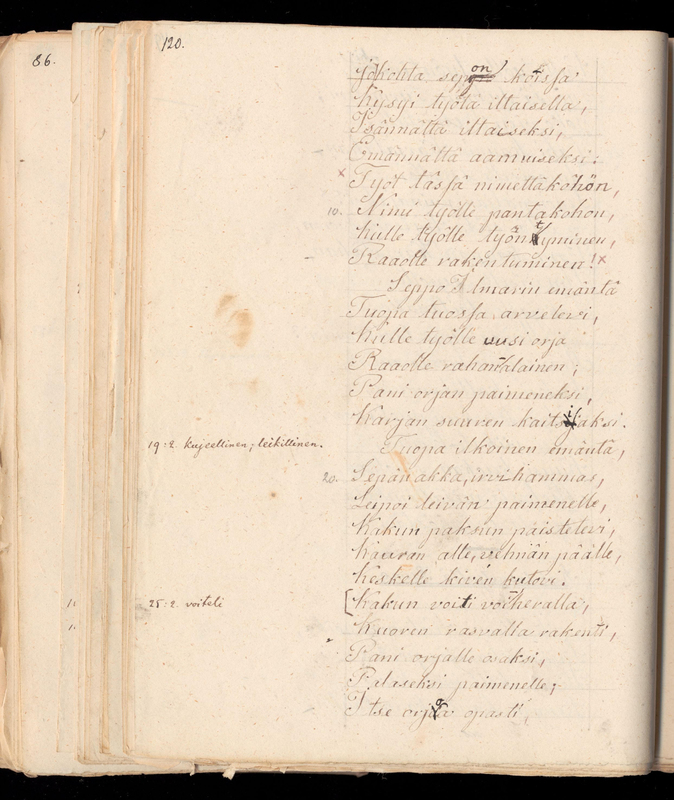 86.
120.
Jokohta sepon koissa
Kysyi työtä iltaisella,
Isännältä iltaiseksi,
Emännältä aamuiseksi:
x Työt tässä nimettäköhön,
10. Nimi työlle pantakohon,
Kulle työlle työntyminen,
Raaolle rakentuminen! x
Seppo Ilmarin emäntä
Tuopa tuossa arvelevi,
Kulle työlle uusi orja
Raaolle rahan alainen;
Pani orjan paimeneksi,
Karjan suuren kaitsijaksi.
19:2. kujeellinen; leikillinen.
Tuopa ilkoinen emäntä,
20. Sepän akka, irvihammas,
Leipoi leivän paimenelle,
Kakun paksun paistelevi,
Kauran alle, vehnän päälle,
Keskelle kiven kutovi.
25:2. voiteli
[Kakun voiti voiheralla,
Kuoren rasvalla rakenti,
Pani orjalle osaksi,
Palaseksi paimenelle;
Itse orjoa opasti,